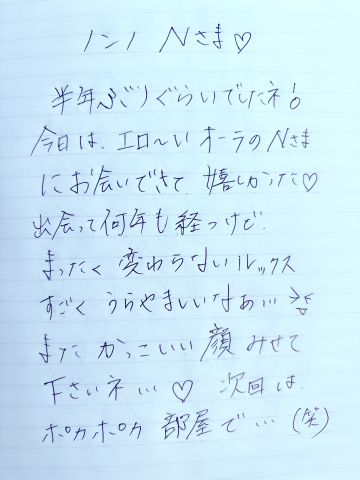 ノンノ Nさま♡
半年ぶりぐらいでしたネ!
今日は、エロ〜いオーラのNさま
にお会いできて 嬉しかった♡
出会って何年も経つけど
まったく変わらないルックス
すごく うらやましいなぁ…
また かっこいい顔みせて
下さいネ…♡ 次回は、
ポカポカ部屋で…(笑)